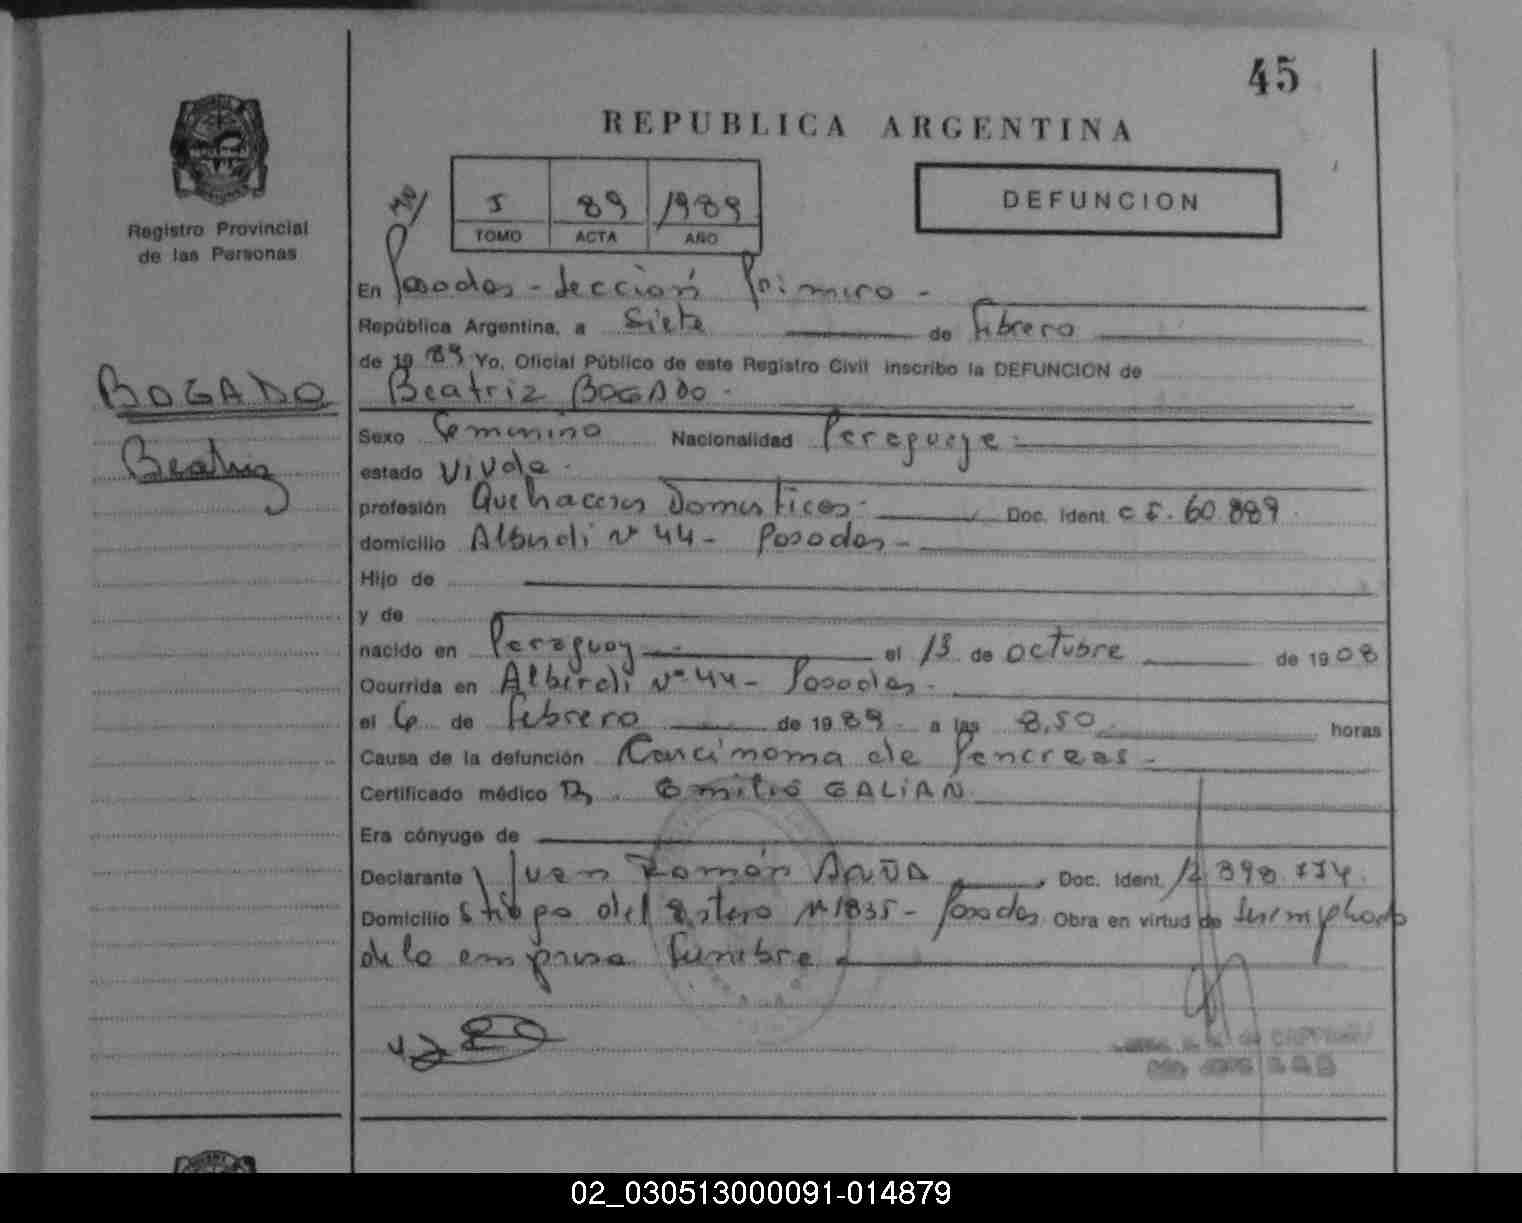 45
REPUBLICA ARGENTINA
DEFUNCION
89 1989
TOMO ACTA AÑO
Registro Provincial
de las Personas
BOGADO
Beatriz
En Posadas - Sección Primera -
República Argentina, a Siete de febrero
de 1989 Yo, Oficial Público de este Registro Civil inscribo la DEFUNCION de
Beatriz BOGADO -
Sexo femenino Nacionalidad Paraguaya -
estado Viuda -
profesión Quehaceres Domesticos - Doc. Ident. 60.889
domicilio Alberdi Nº 44 - Posadas -
Hijo de
y de
nacido en Paraguay el 13 de octubre de 1908
Ocurrida en Alberdi Nº 44 - Posadas -
el 6 de febrero de 1989 a las 8,50 horas
Causa de la defunción Carcinoma de Pancreas -
Certificado médico Dr. Emilio GALIAN
Era cónyuge de
Declarante Juan Ramón Doc. Ident.
Domicilio Stiago del Estero Nº 1835 - Posadas Obra en virtud de ser empleado
de la empresa funebre
02_030513000091-014879